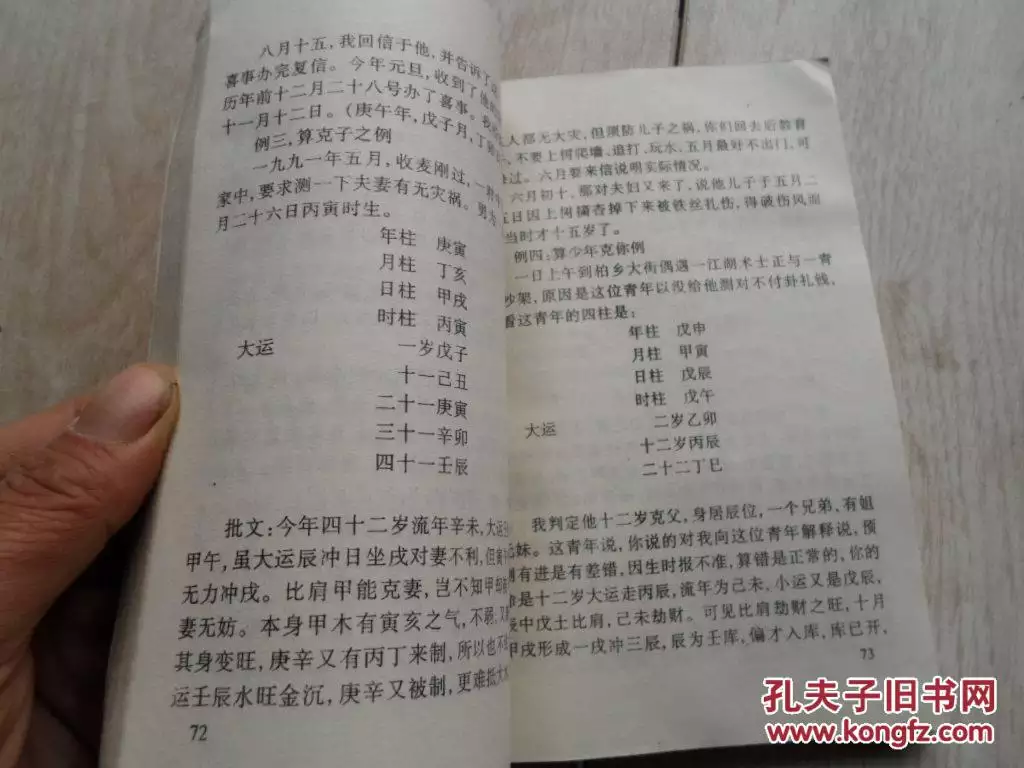 八月十五，我回信于他，并告诉了
喜事办完复信。今年元旦，收到了他的
历年前十二月二十八号办了喜事。
十一月十二日。（庚午年，戊子月，丁
例三，算克子之例
一九九一年五月，收麦刚过，一
家中，要求测一下夫妻有无灾祸。男
月二十六日丙寅时生。
年柱 庚寅
月柱 丁亥
日柱 甲戌
时柱 丙寅
大运 一岁戊子
十一己丑
二十一庚寅
三十一辛卯
四十一壬辰
批文：今年四十二岁流年辛未，大运
甲午，虽大运辰冲日坐戌对妻不利，但寅
无力冲戌。比肩甲能克妻，岂不知甲
妻无妨。本身甲木有寅亥之气，不弱，又
其身变旺，庚辛又有丙丁来制，所以也不
运壬辰水旺金沉，庚辛又被制，更难抵大
72
人都无大灾，但须防儿子之祸，你们回去后教育
，不要上树爬墙、追打、玩水，五月最好不出门，可
过。六月要来信说明实际情况。
六月初十，那对夫妇又来了，说他儿子于五月二
五日因上树摘杏掉下来被铁丝扎伤，得破伤风而
当时才十五岁了。
例四：算少年克你例
一日上午到柏乡大街偶遇一江湖术士正与一青
吵架，原因是这位青年以没给他测对不付卦礼钱，
看这青年的四柱是：
年柱 戊申
月柱 甲寅
日柱 戊辰
时柱 戊午
大运 二岁乙卯
十二岁丙辰
二十二丁巳
我判定他十二岁克父，身居辰位，一个兄弟，有姐
妹。这青年说，你说的对我向这位青年解释说，预
测有进是有差错，因生时报不准，算错是正常的，你的
是十二岁大运走丙辰，流年为己未，小运又是戊辰，
辰中戊土比肩，己未劫财。可见比肩劫财之旺，十月
甲戌形成一戌冲三辰，辰为壬库，偏才入库，库已开，
73
孔夫子旧书网
www.kongfz.com